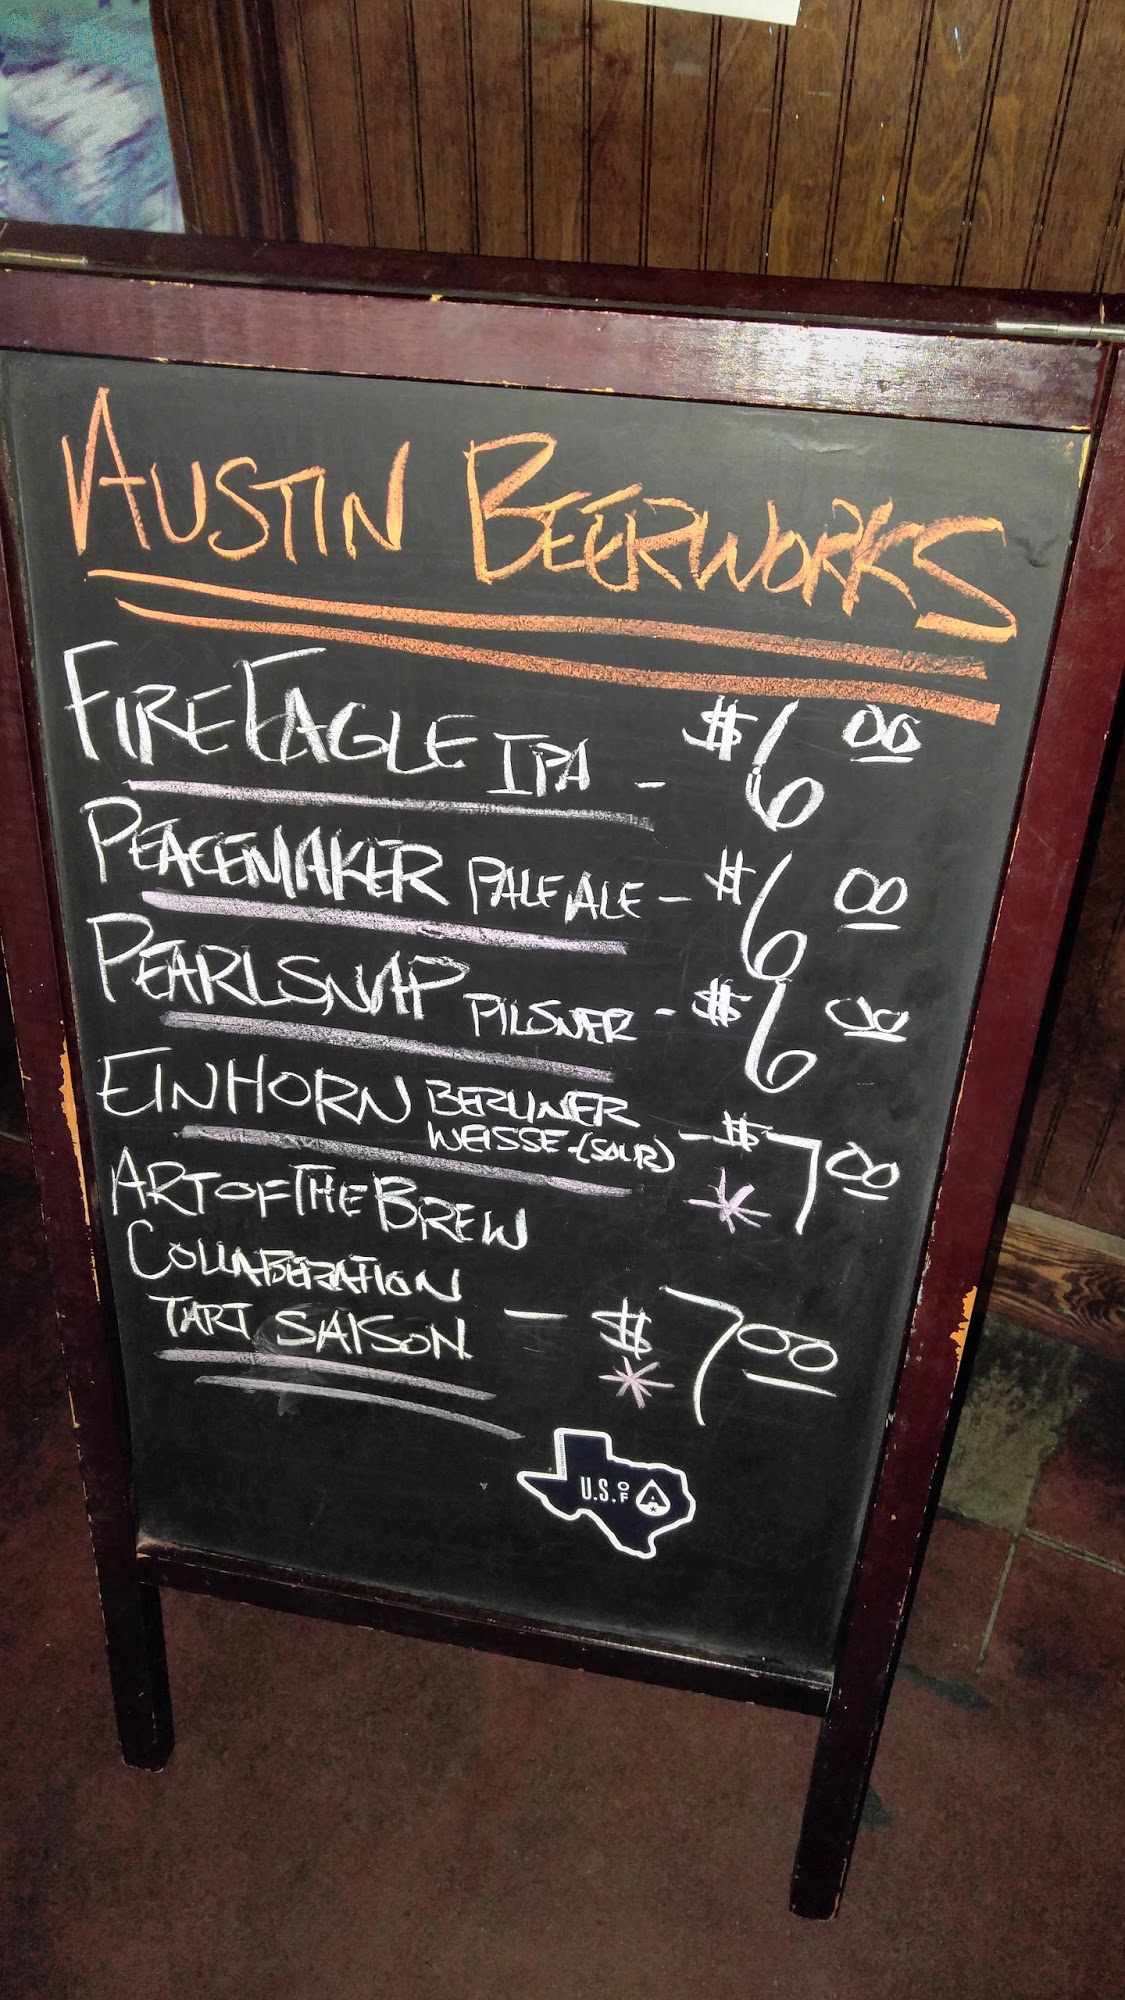 AUSTIN BEERWORKS
FIRE EAGLE IPA - $6 00
PEACEMAKER PALE ALE - $6 00
PEARLSNAP PILSNER - $6 00
EINHORN BERLINER
WEISSE-(SOUR) - $7 00
*
ART OF THE BREW
COLLABERATION
TART SAISON - $7 00
*
U.S. OF A